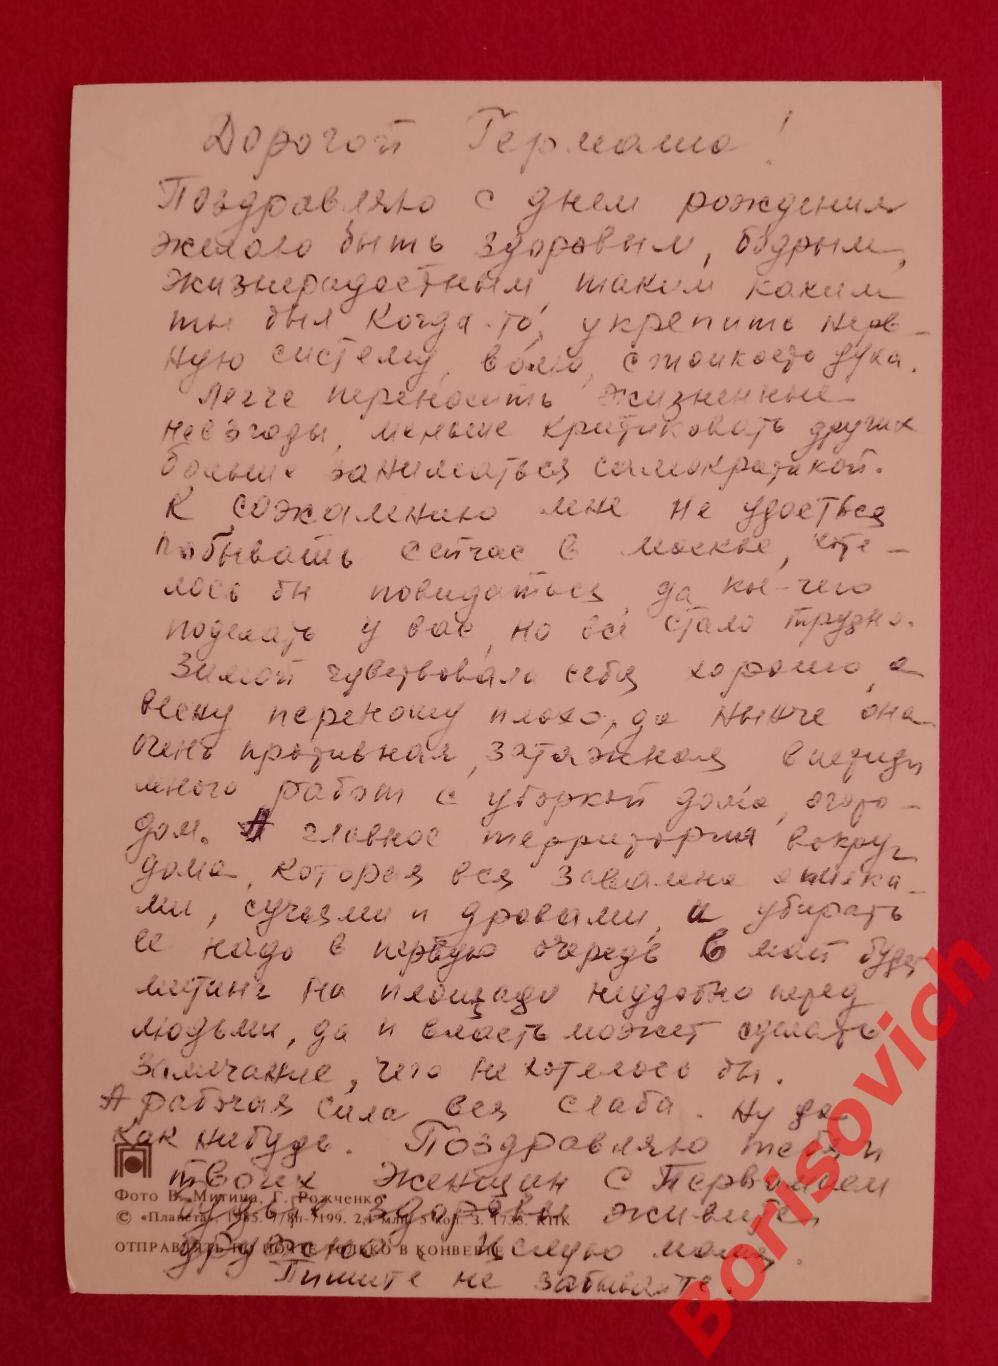 Дорогой Гермаша!
Поздравляю с днем рождения
желаю быть здоровым, бодрым,
жизнерадостным, таким каким
ты был когда-то, укрепить нерв-
ную систему, волю, стойкость духа.
Легче переносить жизненные
невзгоды, меньше критиковать других
больше заниматься самокритикой.
К сожалению мне не удасться
побывать сейчас в москве, хоте-
лось бы повидаться, да кы-чего
поделать у вас, но все стало трудно.
Зимой чувствовала себя хорошо, а
весну переношу плохо, да нынче она
очень противная, затяжная впереди
много работ с уборкой дома, огоро-
дом. А главное территория вокруг
дома, которая вся завалена опилка-
ми, сучьями и дровами, и убирать
ее надо в первую очередь в май будет
митинг на площади неудобно перед
людьми, да и власть может сделать
замечание, чего не хотелось бы.
А рабочая сила вся слаба. Ну да
как нибудь. Поздравляю тебя и
твоих женщин с Первымаем
будьте здоровы живите
дружно. Целую мама.
Пишите не забывайте.
Фото В. Митина, Г. Рожченко
© «Планета»
ОТПРАВЛЯТЬ ПО ПОЧТЕ ТОЛЬКО В КОНВЕРТЕ
Borisovich